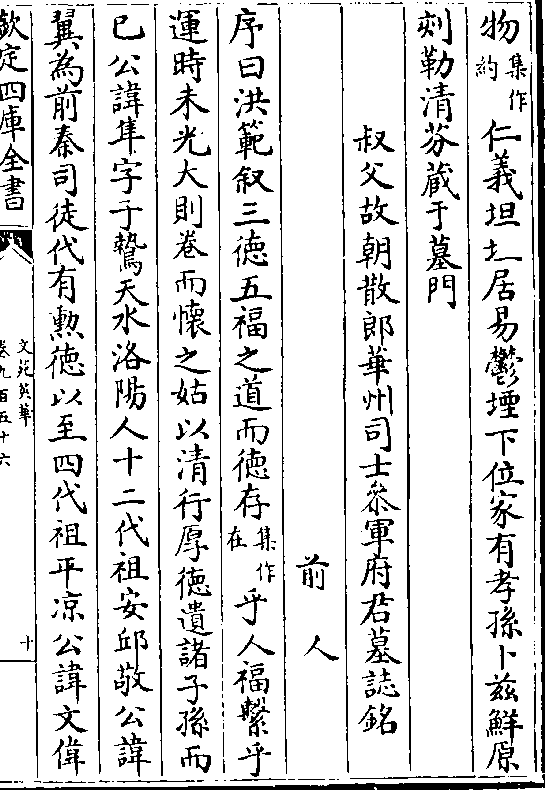 物集作約仁義坦坦居易鬱堙下位家有孝孫卜兹鮮原
刻勒清芬蔵于墓門
叔父故朝散郎華州司士叅軍府君墓誌銘
前人
序曰洪範叙三德五福之道而德存集作在乎人福繫乎
運時未光大則卷而懷之姑以清行厚德遺諸子孫而
已公諱隼字子鷙天水洛陽人十二代祖安邱敬公諱
翼為前秦司徒代有勲德以至四代祖平凉公諱文偉
欽定四庫全書
文苑英華
卷九百五十六
十